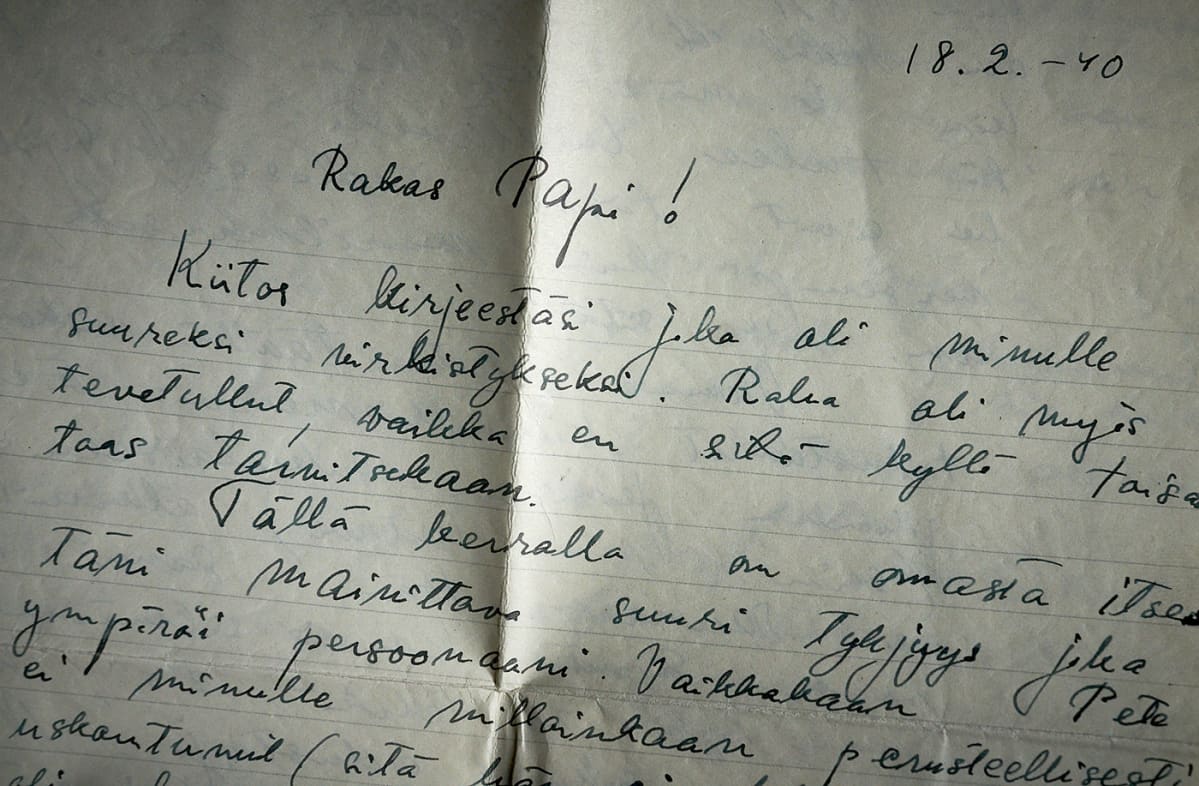 18.2.-40
Rakas Papi!
Kiitos kirjeestäsi joka oli minulle
suureksi virkistykseksi. Raha oli myös
tevetullut, vaikka en sitä kyllä toisa
taas tarvitsekaan.
Tällä kerralla on omasta itses
täni mainittava suuri tyhjyys joka
ympäröi persoonaani. Vaikkakaan Pete
ei minulle milloinkaan perusteellisesti
uskoutunut (sitä